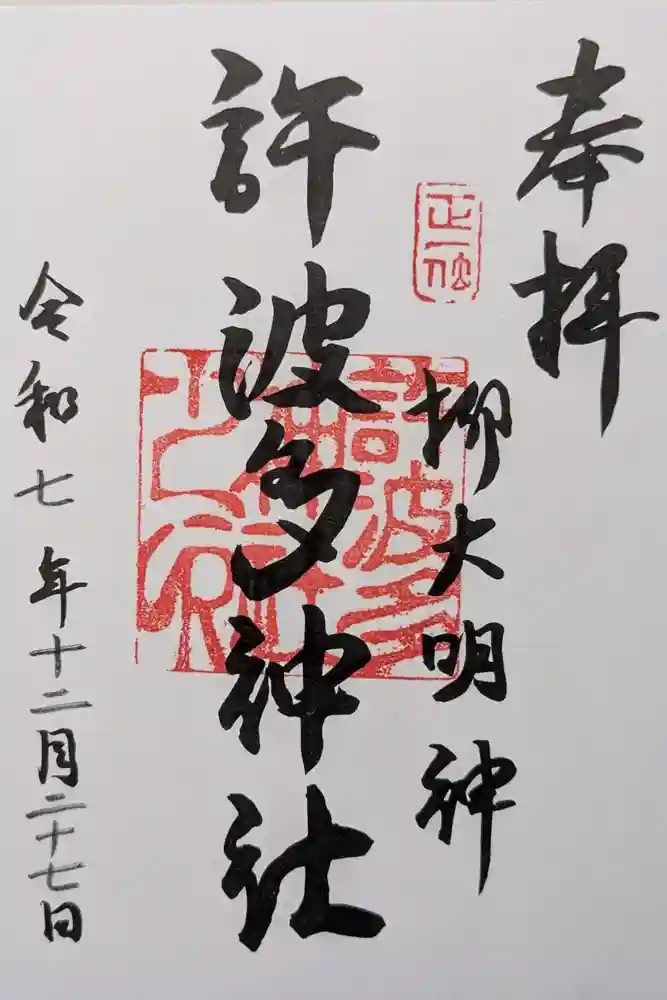 奉拝
正一位
柳大明神
許波多神社
許波多神社之印
令和七年十二月二十七日